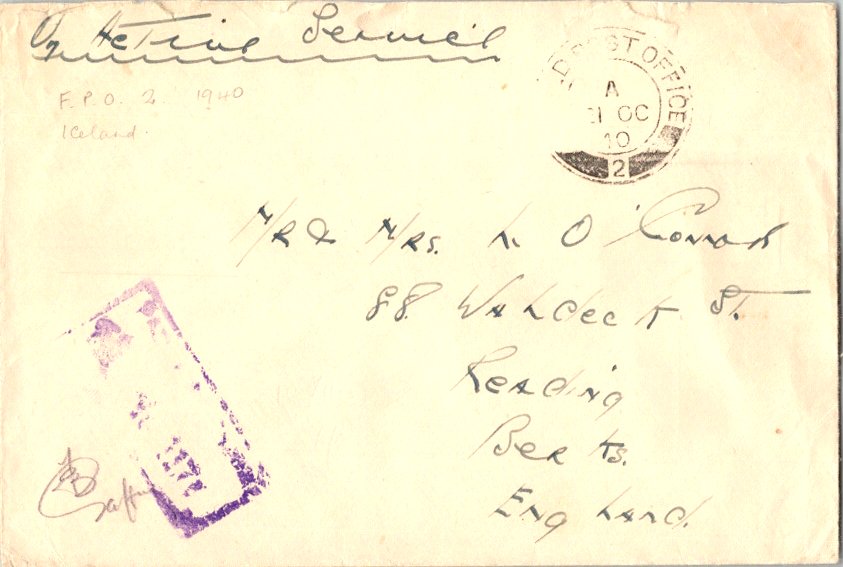 On Active Service
F.P.O. 2. 1940
Iceland.
D POST OFFICE
A
1 OC
10
2
Mr & Mrs. L O'Connor
88. Waldeck St.
Reading
Berks.
England.